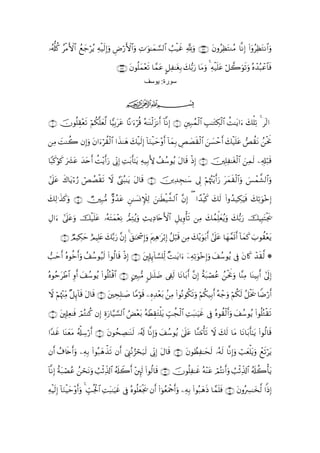 وَٱنتَظِرُوٓا۟ إِنَّا مُنتَظِرُونَ ﴿١٢٢﴾ وَلِلَّهِ غَيْبُ ٱلسَّمَٰوَٰتِ وَٱلْأَرْضِ وَإِلَيْهِ يُرْجَعُ ٱلْأَمْرُ كُلُّهُۥ
فَٱعْبُدْهُ وَتَوَكَّلْ عَلَيْهِ ۚ وَمَا رَبُّكَ بِغَٰفِلٍ عَمَّا تَعْمَلُونَ ﴿١٢٣﴾
سورة: يوسف
بِسْمِ ٱللَّهِ ٱلرَّحْمَٰنِ ٱلرَّحِيمِ
الٓر ۚ تِلْكَ ءَايَٰتُ ٱلْكِتَٰبِ ٱلْمُبِينِ ﴿١﴾ إِنَّآ أَنزَلْنَٰهُ قُرْءَٰنًا عَرَبِيًّا لَّعَلَّكُمْ تَعْقِلُونَ ﴿٢﴾
نَحْنُ نَقُصُّ عَلَيْكَ أَحْسَنَ ٱلْقَصَصِ بِمَآ أَوْحَيْنَآ إِلَيْكَ هَٰذَا ٱلْقُرْءَانَ وَإِن كُنتَ مِن
قَبْلِهِۦ لَمِنَ ٱلْغَٰفِلِينَ ﴿٣﴾ إِذْ قَالَ يُوسُفُ لِأَبِيهِ يَٰٓأَبَتِ إِنِّى رَأَيْتُ أَحَدَ عَشَرَ كَوْكَبًا
وَٱلشَّمْسَ وَٱلْقَمَرَ رَأَيْتُهُمْ لِى سَٰجِدِينَ ﴿٤﴾ قَالَ يَٰبُنَىَّ لَا تَقْصُصْ رُءْيَاكَ عَلَىٰٓ
إِخْوَتِكَ فَيَكِيدُوا۟ لَكَ كَيْدًا ۖ إِنَّ ٱلشَّيْطَٰنَ لِلْإِنسَٰنِ عَدُوٌّ مُّبِينٌ ﴿٥﴾ وَكَذَٰلِكَ
يَجْتَبِيكَ رَبُّكَ وَيُعَلِّمُكَ مِن تَأْوِيلِ ٱلْأَحَادِيثِ وَيُتِمُّ نِعْمَتَهُۥ عَلَيْكَ وَعَلَىٰٓ ءَالِ
يَعْقُوبَ كَمَآ أَتَمَّهَا عَلَىٰٓ أَبَوَيْكَ مِن قَبْلُ إِبْرَٰهِيمَ وَإِسْحَٰقَ ۚ إِنَّ رَبَّكَ عَلِيمٌ حَكِيمٌ ﴿٦﴾
۞ لَّقَدْ كَانَ فِى يُوسُفَ وَإِخْوَتِهِۦٓ ءَايَٰتٌ لِّلسَّآئِلِينَ ﴿٧﴾ إِذْ قَالُوا۟ لَيُوسُفُ وَأَخُوهُ أَحَبُّ
إِلَىٰٓ أَبِينَا مِنَّا وَنَحْنُ عُصْبَةٌ إِنَّ أَبَانَا لَفِى ضَلَٰلٍ مُّبِينٍ ﴿٨﴾ ٱقْتُلُوا۟ يُوسُفَ أَوِ ٱطْرَحُوهُ
أَرْضًا يَخْلُ لَكُمْ وَجْهُ أَبِيكُمْ وَتَكُونُوا۟ مِنۢ بَعْدِهِۦ قَوْمًا صَٰلِحِينَ ﴿٩﴾ قَالَ قَآئِلٌ مِّنْهُمْ لَا
تَقْتُلُوا۟ يُوسُفَ وَأَلْقُوهُ فِى غَيَٰبَتِ ٱلْجُبِّ يَلْتَقِطْهُ بَعْضُ ٱلسَّيَّارَةِ إِن كُنتُمْ فَٰعِلِينَ ﴿١٠﴾
قَالُوا۟ يَٰٓأَبَانَا مَا لَكَ لَا تَأْمَ۫نَّا عَلَىٰ يُوسُفَ وَإِنَّا لَهُۥ لَنَٰصِحُونَ ﴿١١﴾ أَرْسِلْهُ مَعَنَا غَدًا
يَرْتَعْ وَيَلْعَبْ وَإِنَّا لَهُۥ لَحَٰفِظُونَ ﴿١٢﴾ قَالَ إِنِّى لَيَحْزُنُنِىٓ أَن تَذْهَبُوا۟ بِهِۦ وَأَخَافُ أَن
يَأْكُلَهُ ٱلذِّئْبُ وَأَنتُمْ عَنْهُ غَٰفِلُونَ ﴿١٣﴾ قَالُوا۟ لَئِنْ أَكَلَهُ ٱلذِّئْبُ وَنَحْنُ عُصْبَةٌ إِنَّآ
إِذًا لَّخَٰسِرُونَ ﴿١٤﴾ فَلَمَّا ذَهَبُوا۟ بِهِۦ وَأَجْمَعُوٓا۟ أَن يَجْعَلُوهُ فِى غَيَٰبَتِ ٱلْجُبِّ ۚ وَأَوْحَيْنَآ إِلَيْهِ